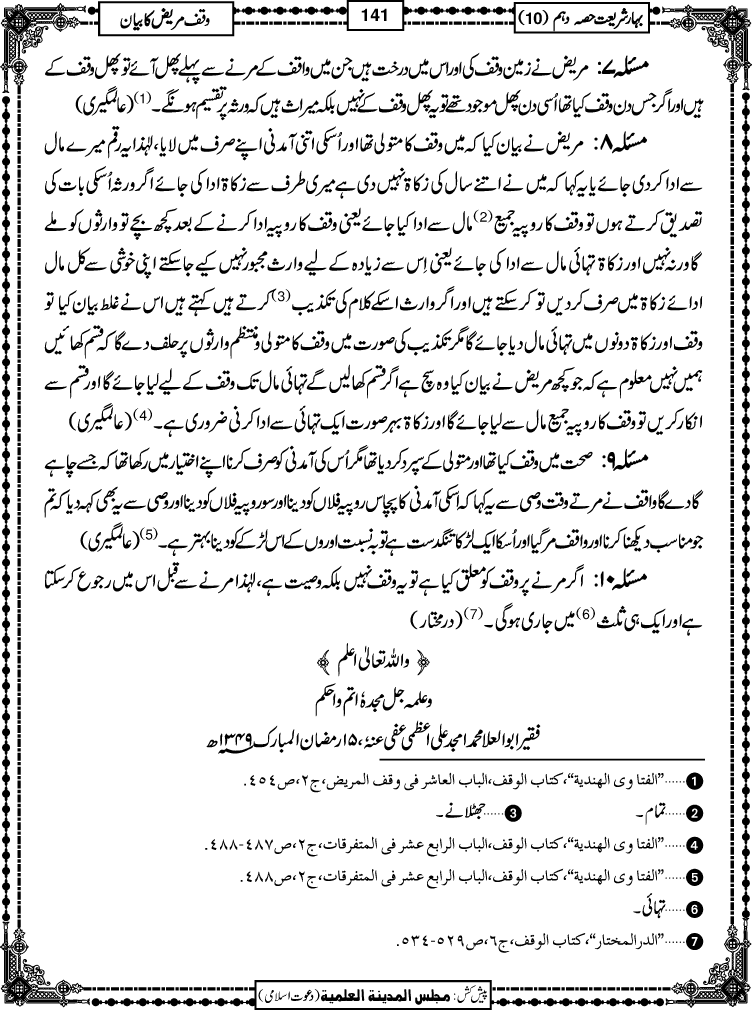 بہارشریعت حصہ دہم (10)
141
وقف مریض کا بیان
مسئلہ ۷: مریض نے زمین وقف کی اور اس میں درخت ہیں جن میں واقف کے مرنے سے پہلے پھل آئے تو پھل وقف کے
ہیں اور اگر جس دن وقف کیا تھا اُسی دن پھل موجود تھے تو یہ پھل وقف کے نہیں بلکہ میراث ہیں کہ ورثہ پر تقسیم ہونگے۔(1) (عالمگیری)
مسئلہ ۸: مریض نے بیان کیا کہ میں وقف کا متولی تھا اور اُسکی اتنی آمدنی اپنے صرف میں لایا، لہٰذا یہ رقم میرے مال
سے ادا کردی جائے یا یہ کہا کہ میں نے اتنے سال کی زکاۃ نہیں دی ہے میری طرف سے زکاۃ ادا کی جائے اگر ورثہ اُسکی بات کی
تصدیق کرتے ہوں تو وقف کا روپیہ جمیع(2) مال سے ادا کیا جائے یعنی وقف کا روپیہ ادا کرنے کے بعد کچھ بچے تو وارثوں کو ملے
گا ورنہ نہیں اور زکاۃ تہائی مال سے ادا کی جائے یعنی اِس سے زیادہ کے لیے وارث مجبور نہیں کیے جاسکتے اپنی خوشی سے کل مال
ادائے زکاۃ میں صرف کردیں تو کرسکتے ہیں اور اگر وارث اسکے کلام کی تکذیب(3) کرتے ہیں کہتے ہیں اس نے غلط بیان کیا تو
وقف اور زکاۃ دونوں میں تہائی مال دیا جائے گا مگر تکذیب کی صورت میں وقف کا متولی و منتظم وارثوں پر حلف دے گا کہ قسم کھائیں
ہمیں نہیں معلوم ہے کہ جو کچھ مریض نے بیان کیا وہ سچ ہے اگر قسم کھالیں گے تہائی مال تک وقف کے لیے لیا جائے گا اور قسم سے
انکار کریں تو وقف کا روپیہ جمیع مال سے لیا جائے گا اور زکاۃ بہر صورت ایک تہائی سے ادا کرنی ضروری ہے۔(4) (عالمگیری)
مسئلہ ۹: صحت میں وقف کیا تھا اور متولی کے سپرد کردیا تھا مگر اُس کی آمدنی کو صرف کرنا اپنے اختیار میں رکھا تھا کہ جسے چاہے
گا دے گا واقف نے مرتے وقت وصی سے یہ کہا کہ اسکی آمدنی کا پچاس روپیہ فلاں کو دینا اور سو روپیہ فلاں کو دینا اور وصی سے یہ بھی کہہ دیا کہ تم
جو مناسب دیکھنا کرنا اور واقف مرگیا اور اُسکا ایک لڑکا تنگدست ہے تو بہ نسبت اوروں کے اس لڑکے کو دینا بہتر ہے۔(5) (عالمگیری)
مسئلہ ۱۰: اگر مرنے پر وقف کو معلق کیا ہے تو یہ وقف نہیں بلکہ وصیت ہے، لہٰذا مرنے سے قبل اس میں رجوع کرسکتا
ہے اور ایک ہی ثلث(6) میں جاری ہوگی۔(7) (درمختار)
﴿ واللہ تعالیٰ اعلم ﴾
وعلمہ جل مجدہٗ اتم واحکم
فقیر ابوالعلا محمد امجد علی اعظمی عفی عنہٗ، ۱۵رمضان المبارک ۱۳۴۹ھ
1......"الفتاوی الهندیة"، کتاب الوقف،الباب العاشر فی وقف المریض،ج۲،ص۴۵۴.
2......تمام۔
3......جھٹلانے۔
4......"الفتاوی الهندیة"، کتاب الوقف،الباب الرابع عشر فی المتفرقات،ج۲،ص۴۸۷-۴۸۸.
5......"الفتاوی الهندیة"، کتاب الوقف،الباب الرابع عشر فی المتفرقات،ج۲،ص۴۸۸.
6......تہائی۔
7......"الدرالمختار"، کتاب الوقف،ج۶،ص۵۲۹-۵۳۴.
پیش کش: مجلس المدینة العلمیة (دعوت اسلامی)